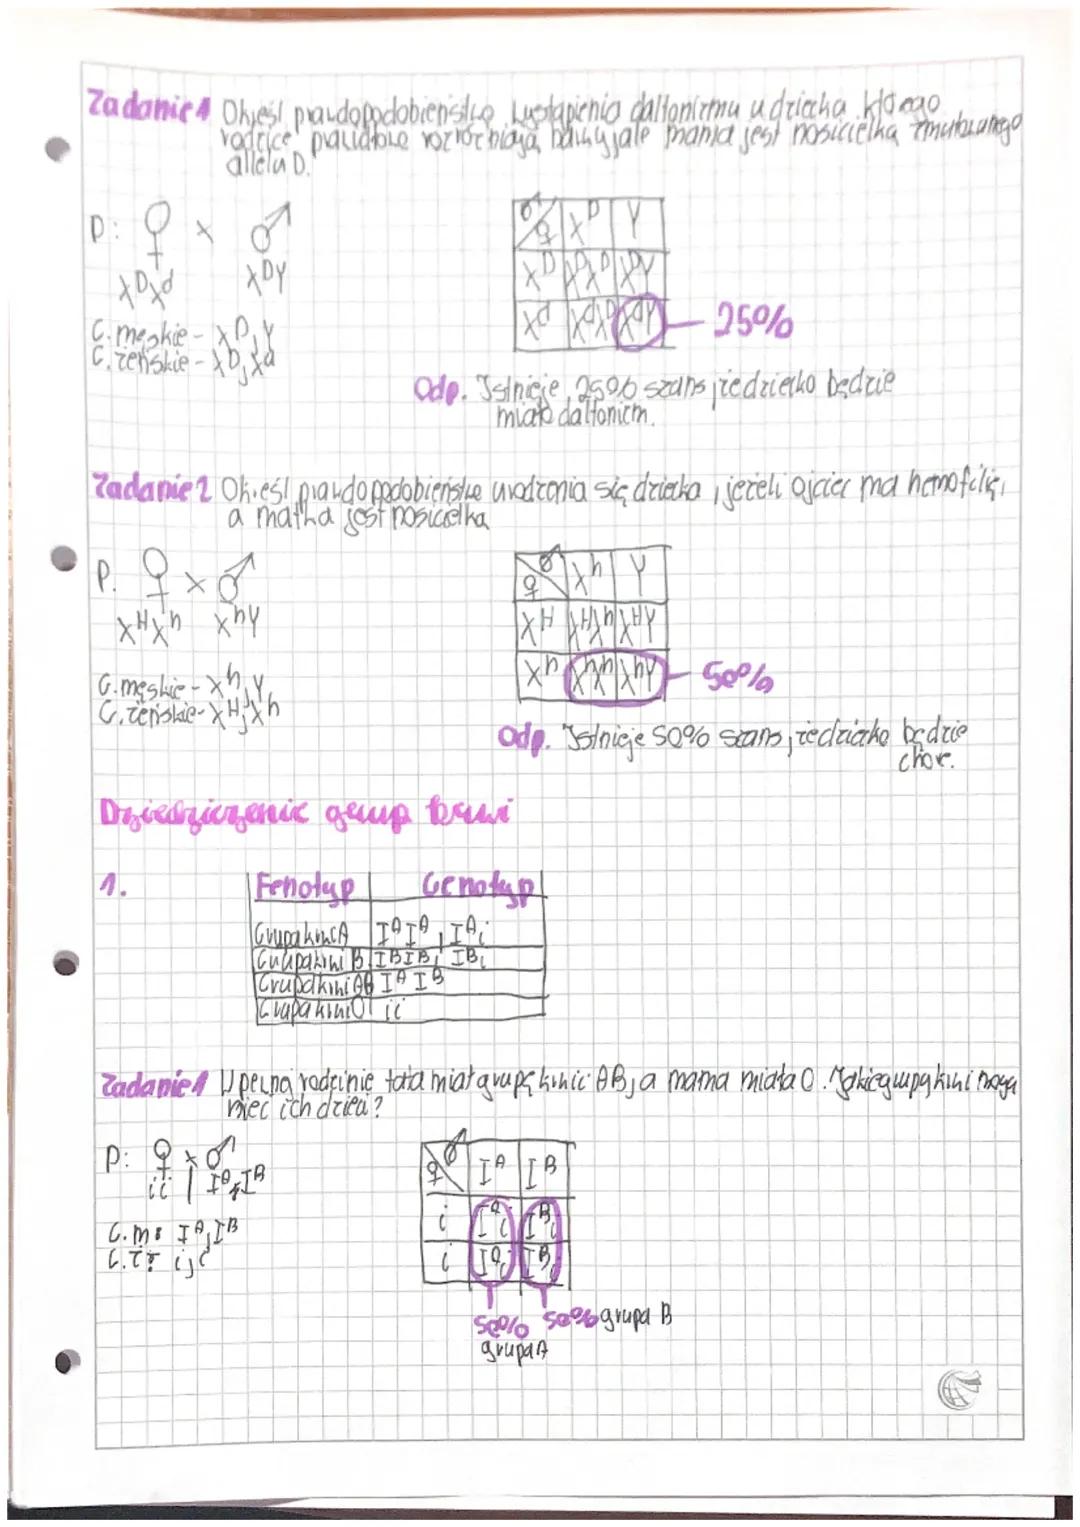 Zadanie 1 Określ prawdopodobieństwo wystąpienia daltonizmu u dziecka, którego
rodzice prawidłowo rozróżniają barwy, ale mama jest nosicielką zmutowanego
allelu D.
P: ♀ × ♂
X^D X^d X^D Y
G. męskie - X^D, Y
G. żeńskie - X^D, X^d
♂ ♀ X^D Y
X^D X^D X^D X^D Y
X^d X^d X^D X^d Y 25%
Odp. Istnieje 25% szans, że dziecko będzie
miało daltonizm.
Zadanie 2 Określ prawdopodobieństwo urodzenia się dziecka, jeżeli ojciec ma hemofilię,
a matka jest nosicielką
P. ♀ × ♂
X^H X^h X^h Y
G. męskie - X^h, Y
G. żeńskie - X^H, X^h
♀ ♂ X^h Y
X^H X^H X^h X^H Y
X^h X^h X^h X^h Y 50%
Odp. Istnieje 50% szans, że dziecko będzie
chore.
Dziedziczenie grup krwi
1.
Fenotyp Genotyp
Grupa krwi A I^A I^A, I^A i
Grupa krwi B I^B I^B, I^B i
Grupa krwi AB I^A I^B
Grupa krwi 0 ii
Zadanie 1 W pewnej rodzinie tata miał grupę krwi AB, a mama miała 0. Jakie grupy krwi mogą
mieć ich dzieci?
P: ♀ × ♂
ii | I^A, I^B
G. m: I^A, I^B
G. ż: i, i
♀ ♂ I^A I^B
i I^A i I^B i
i I^A i I^B i
50% 50% grupa B
grupa A